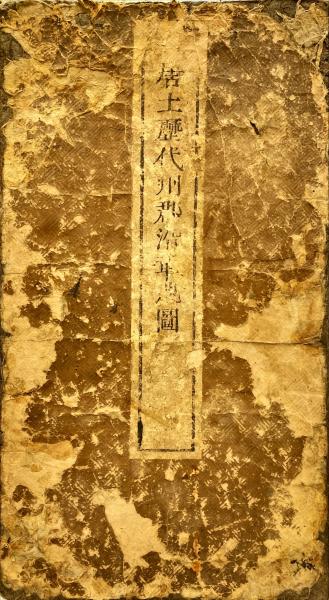 唐土歷代州郡沿革地圖